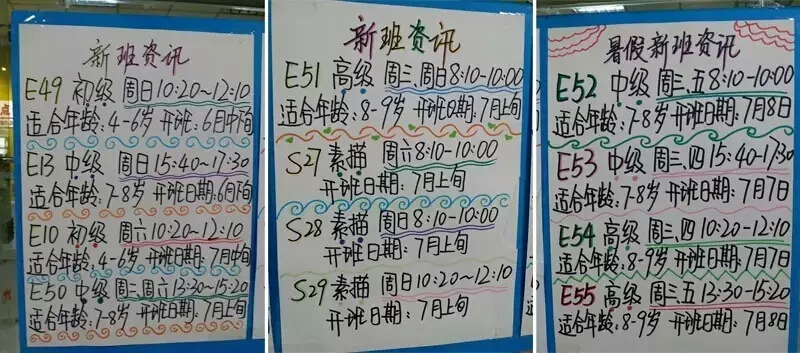 新班资讯
E49 初级 周日10:20~12:10
适合年龄:4-6岁 开班:6月中旬
E13 中级 周日15:40~17:30
适合年龄:7-8岁 开班日期:6月下旬
E10 初级 周六10:20~12:10
适合年龄:4-6岁 开班日期:7月中旬
E50 中级 周三、周六13:30-15:20
适合年龄:7-8岁 开班日期:7月上旬
新班资讯
E51 高级 周三、周日8:10-10:00
适合年龄:8-9岁 开班日期:7月上旬
S27 素描 周六8:10-10:00
开班日期:7月上旬
S28 素描 周日8:10-10:00
开班日期:7月上旬
S29 素描 周日10:20~12:10
开班日期:7月上旬
暑假新班资讯
E52 中级 周三、五8:10-10:00
适合年龄:7-8岁 开班日期:7月8日
E53 中级 周三、四15:40-17:30
适合年龄:7-8岁 开班日期:7月7日
E54 高级 周三、四10:20-12:10
适合年龄:8-9岁 开班日期:7月7日
E55 高级 周三、五13:30-15:20
适合年龄:8-9岁 开班日期:7月8日